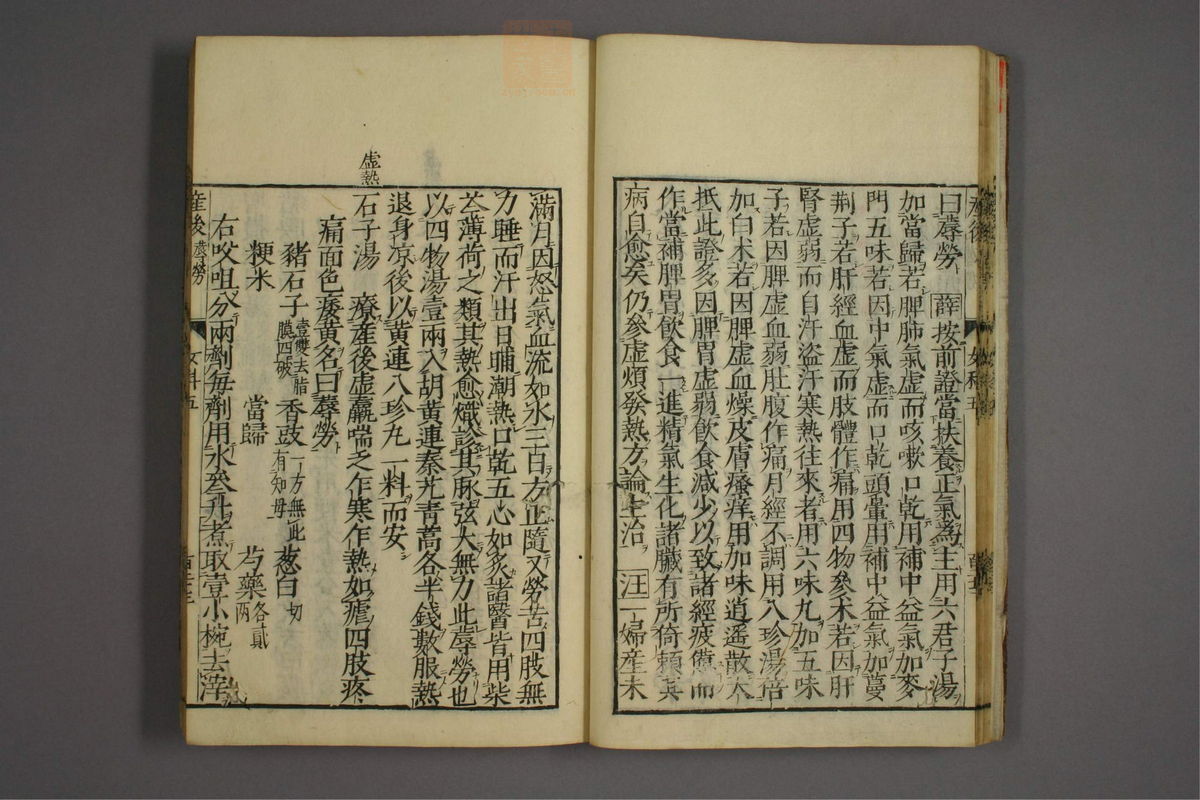 曰蓐勞 薛 按前證當扶養正氣爲主用六君子湯
加當歸若脾肺氣虛而咳嗽口乾用補中益氣加麥
門五味若因中氣虛而口乾頭暈用補中益氣加蔓
荆子若肝經血虛而肢體作痛用四物參术若因肝
腎虛弱而自汗盜汗寒熱往來者用六味丸加五味
子若因脾虛血弱肚腹作痛月經不調用八珍湯倍
加白术若因脾虛血燥皮膚瘙痒用加味逍遥散大
抵此證多因脾胃虛弱飲食減少以致諸經疲憊而
作當補脾胃飲食一進精氣生化諸臟有所倚賴其
病自愈矣仍參虛煩發熱方論主治 汪 一婦產未
滿月因怒氣血流如水三百方正隨又勞苦四肢無
力睡而汗出日晡潮熱口乾五心如炙諸醫皆用柴
芩薄荷之類其熱愈熾診其脉弦大無力此蓐勞也
以四物湯壹兩入胡黃連秦艽青蒿各半錢數服熱
退身凉後以黃連八珍丸一料而安
虛熱
石子湯 療產後虛羸喘乏作寒作熱如瘧四肢疼
痛面色痿黃名曰蓐勞
豬石子壹雙去脂膜四破 香豉一方無此有知母 葱白切
粳米 當歸 芍藥各貳兩
右㕮咀分兩劑每劑用水叄升煮取壹小椀去滓
產後 蓐勞 女科五